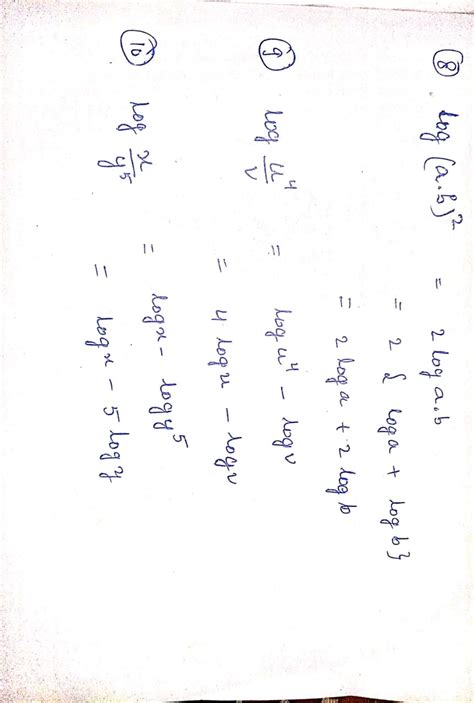 ⑧ log (a.b)² = 2 log a.b
= 2 { log a + log b}
= 2 log a + 2 log b
⑨ log u⁴/v = log u⁴ - log v
= 4 log u - log v
⑩ log x/y⁵ = log x - log y⁵
= log x - 5 log y